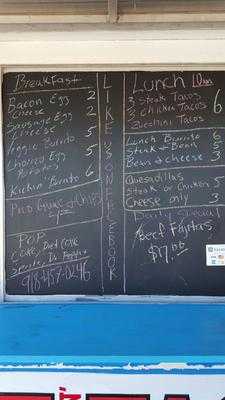 Breakfast
Bacon Egg 2
Cheese
Sausage Egg 2
Cheese
Veggie Burrito 5
Chorizo Egg 5
Potatoes
Kickin' Burrito 6
Chips
POP
Coke, Diet Coke
Sprite, Dr Pepper
918-457-0246
LIKE US ON FACEBOOK
Lunch
3 Steak Tacos
3 Chicken Tacos 6
Zucchini Tacos
Lunch Burrito 6
Steak & Bean 5
Beans & cheese 3
Quesadillas
Steak or Chicken 5
Cheese only 3
Daily Special
Beef Fajitas